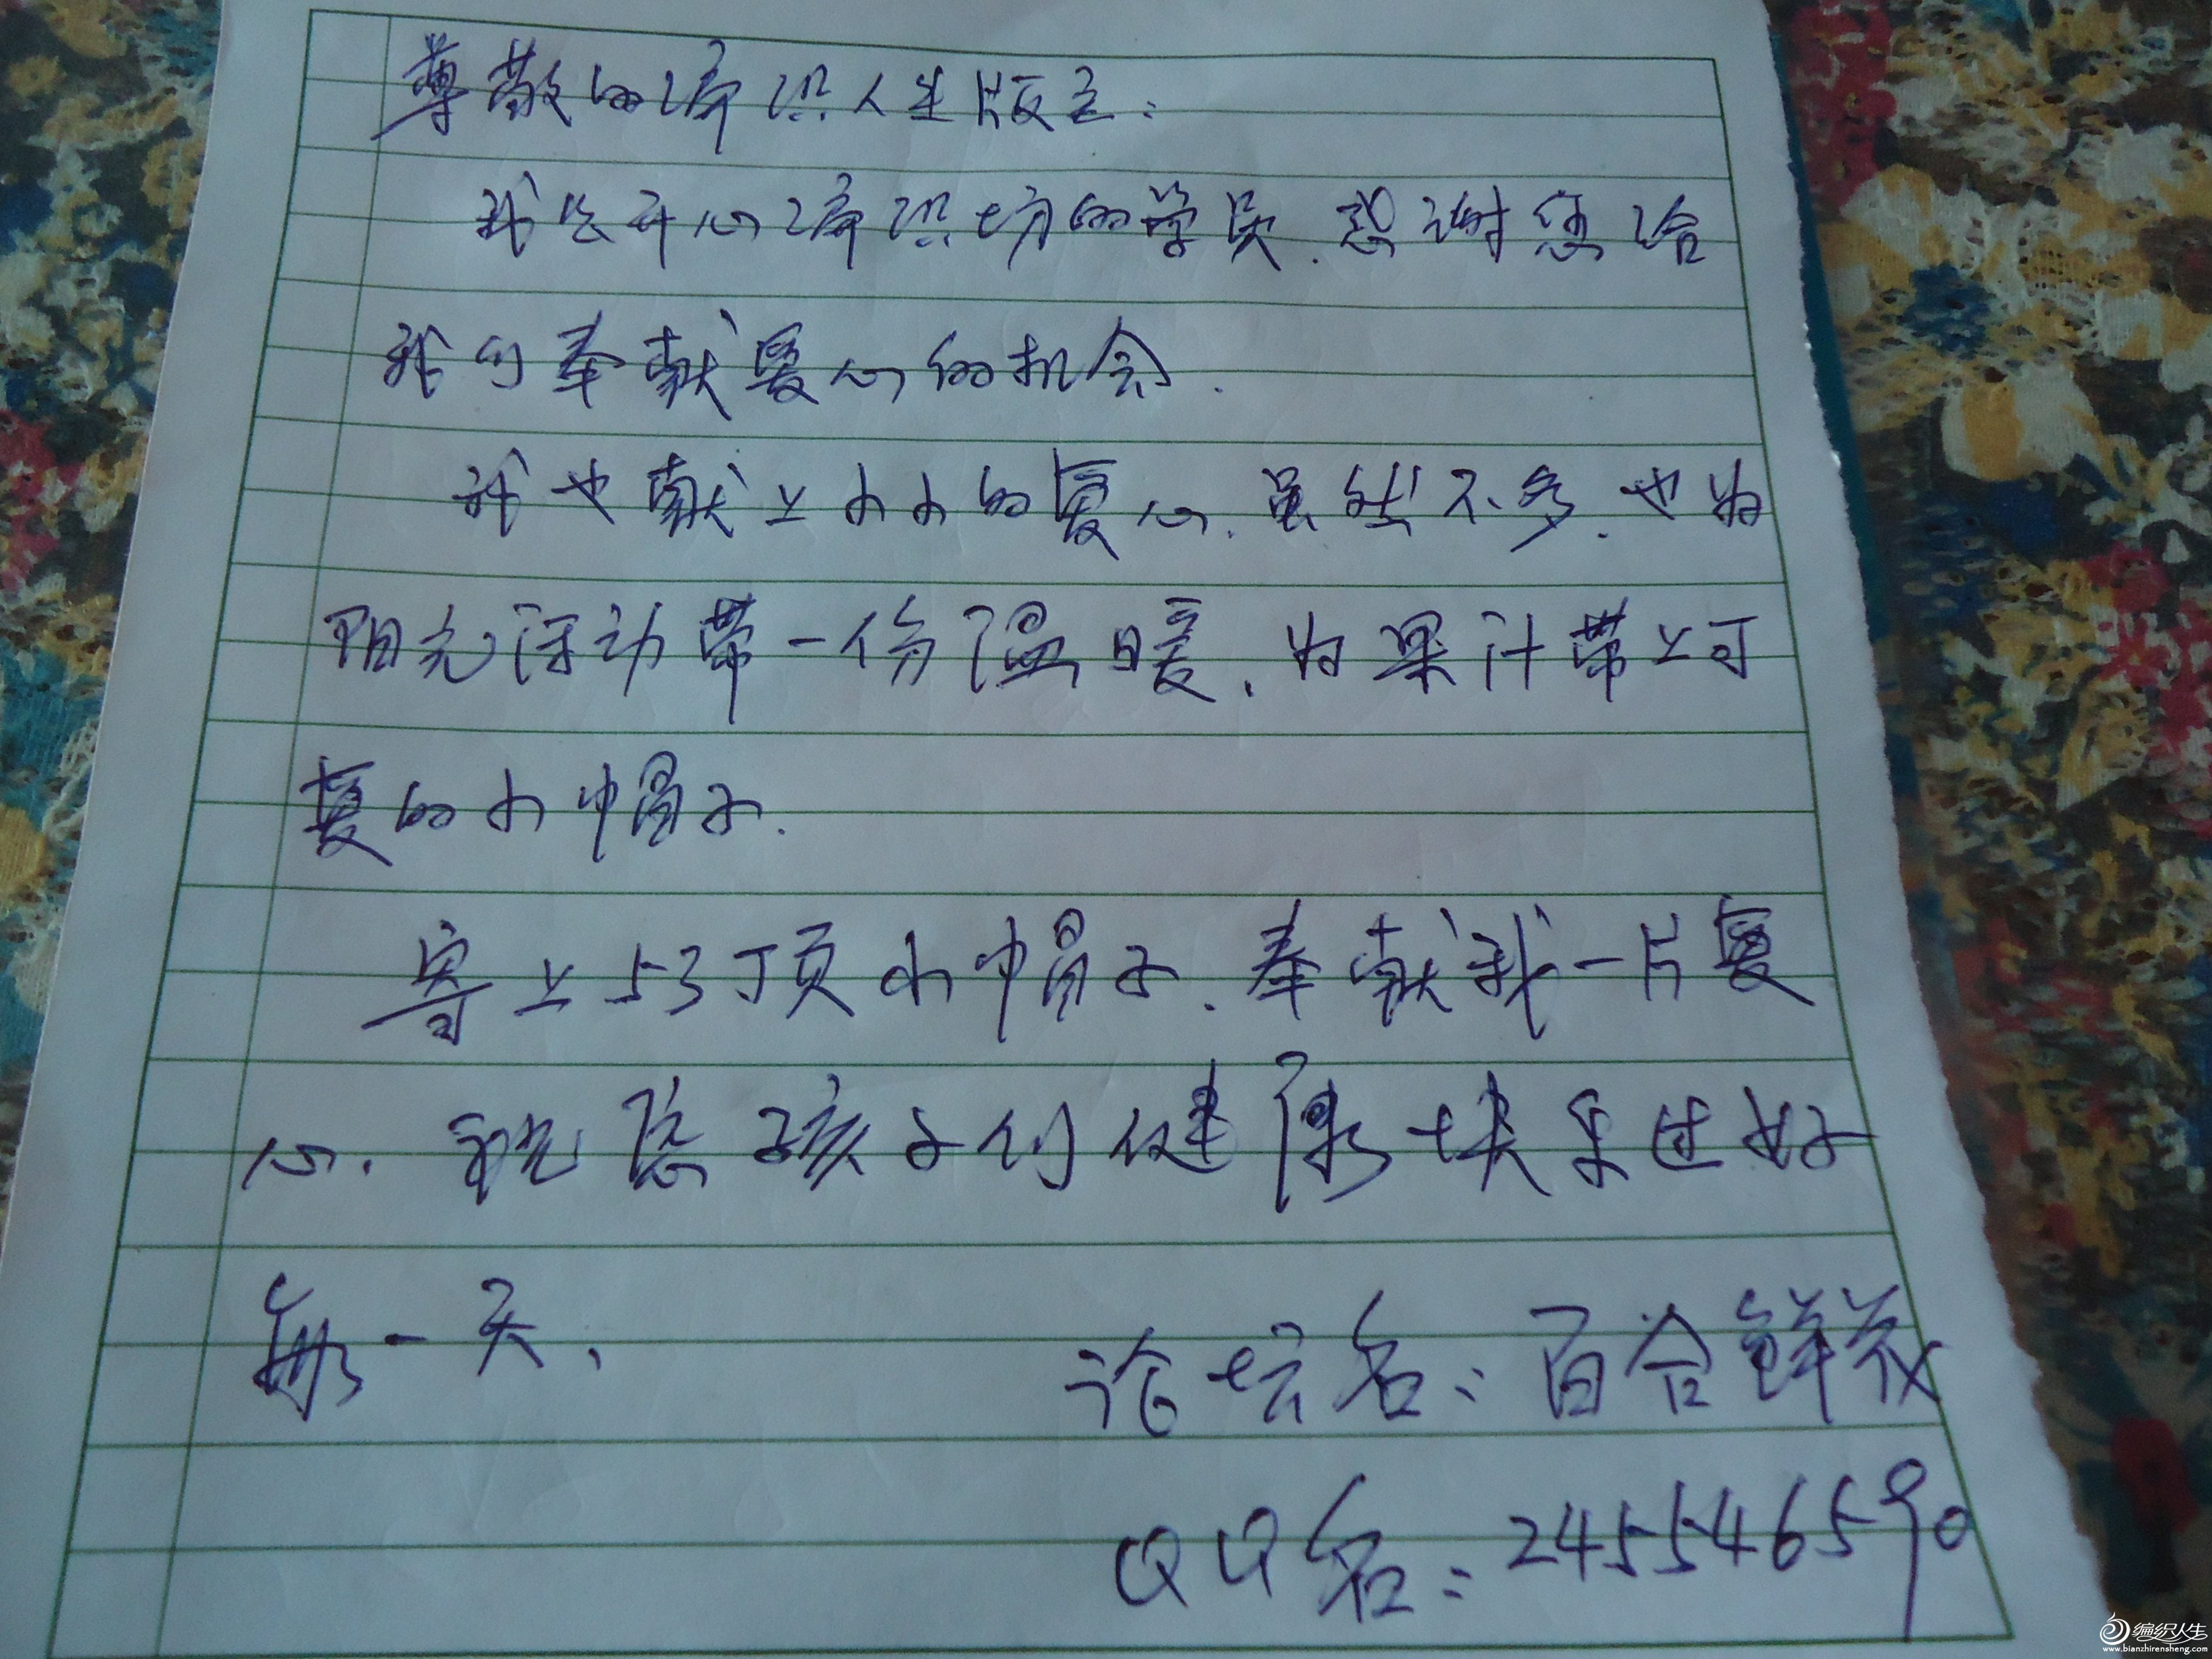 尊敬的编织人生版主：
我是开心编织坊的学员.感谢您给
我们奉献爱心的机会.
我也献上小小的爱心.虽然不多.也为
阳光活动带一份温暖、为果汁带上可
爱的小帽子.
寄上53顶小帽子.奉献我一片爱
心.祝愿孩子们健康快乐过好
每一天、
论坛名：百合鲜花
QQ名：2455546590
编织人生
www.bianzhirensheng.com